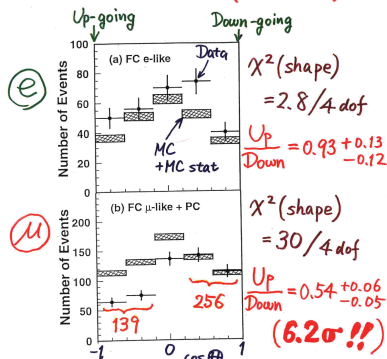 Up-going Down-going
(a) FC e-like
Data
Number of Events
100
80
60
40
20
0
MC
+MC stat
e
χ² (shape)
= 2.8/4 dof
Up/Down = 0.93 +0.13 -0.12
(b) FC μ-like + PC
Number of Events
200
150
100
50
0
139
256
-1 0 1
μ
χ² (shape)
= 30/4 dof
Up/Down = 0.54 +0.06 -0.05
(6.2σ !!)